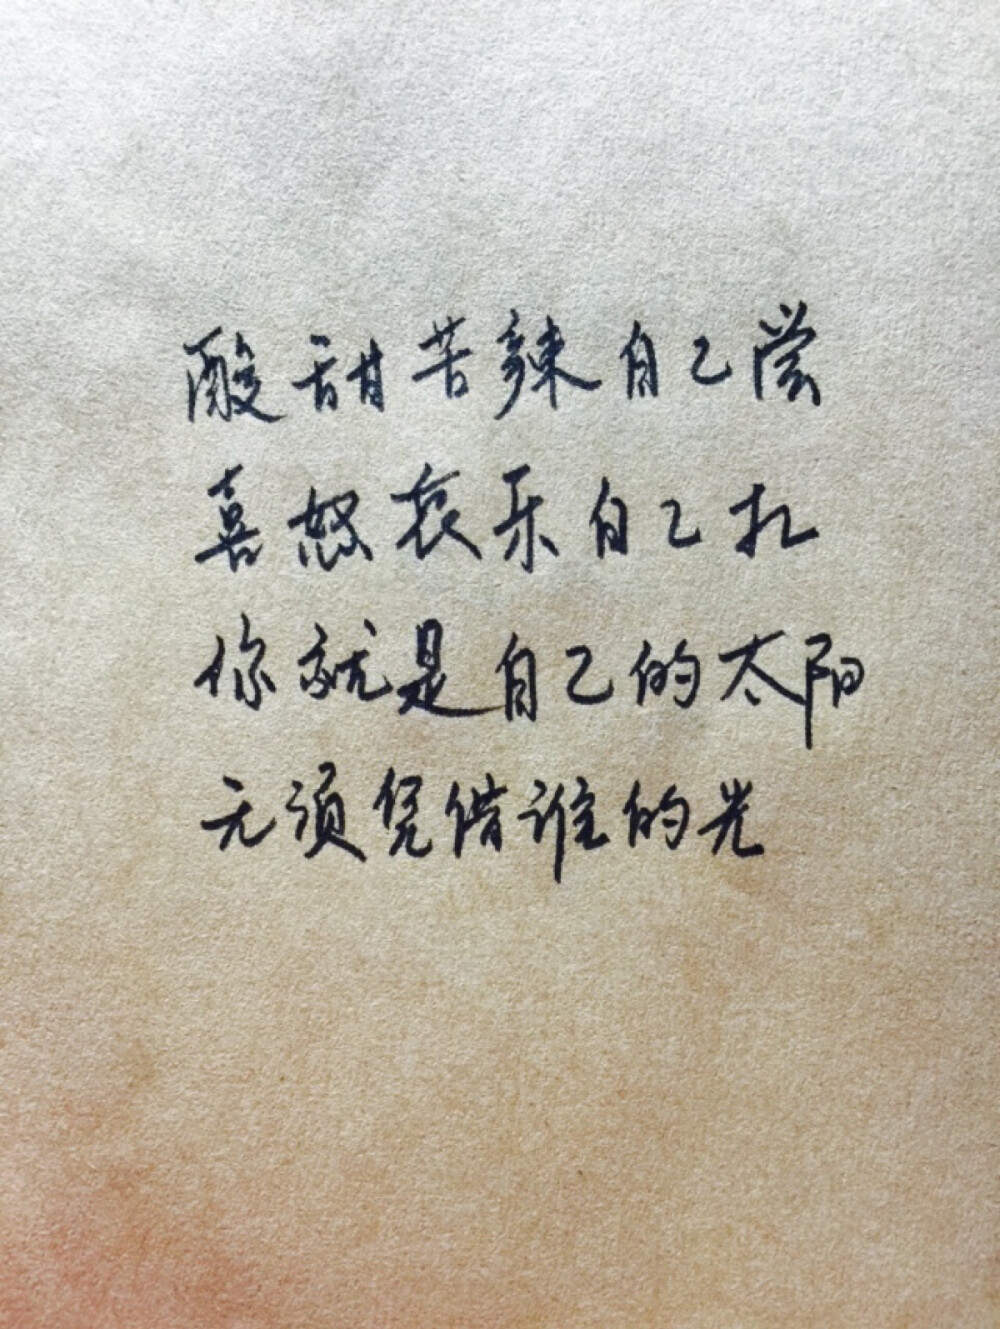 酸甜苦辣自己尝
喜怒哀乐自己扛
你就是自己的太阳
无须凭借谁的光